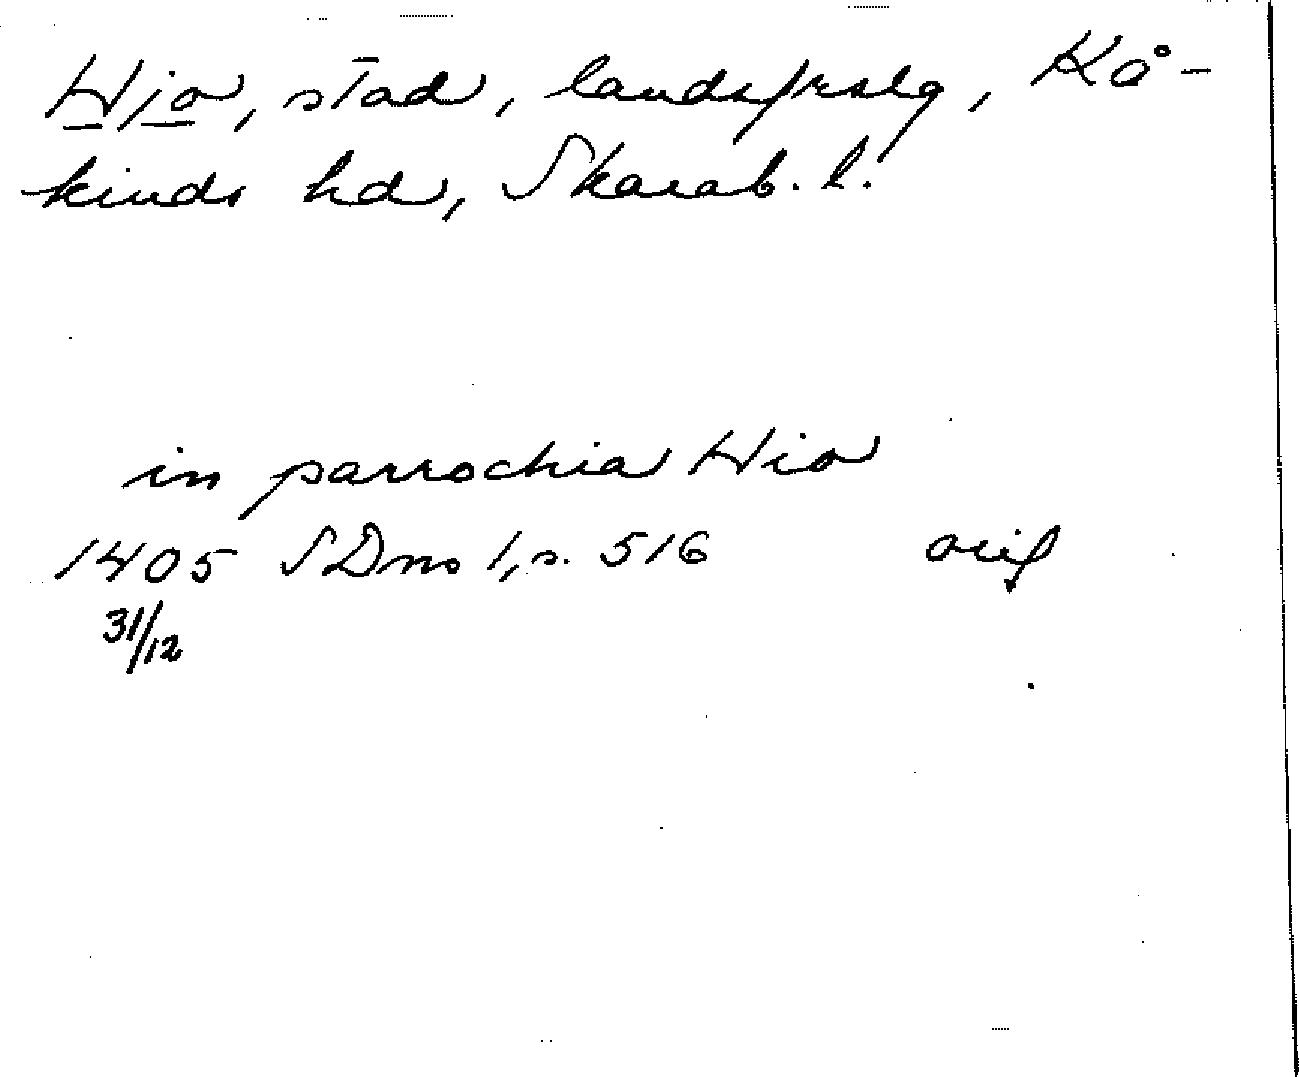 Hjo, stad, landsfrslg, Kå-
kinds hd, Skarab. l.
in parrochia Hio
1405 SDns 1, s. 516 orig
31/12